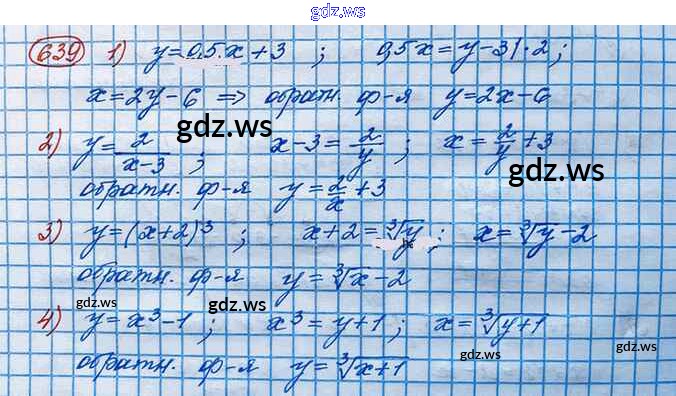 gdz.ws
639 1) y=0,5x+3 ; 0,5x=y-3|·2;
x=2y-6 ⇒ обратн. ф-я y=2x-6
gdz.ws
2) y=2/(x-3) ; x-3=2/y ; x=2/y+3
gdz.ws
обратн. ф-я y=2/x+3
3) y=(x+2)³ ; x+2=∛y ; x=∛y-2
обратн. ф-я y=∛x-2
gdz.ws gdz.ws
4) y=x³-1 ; x³=y+1 ; x=∛(y+1)
gdz.ws gdz.ws
обратн. ф-я y=∛(x+1)